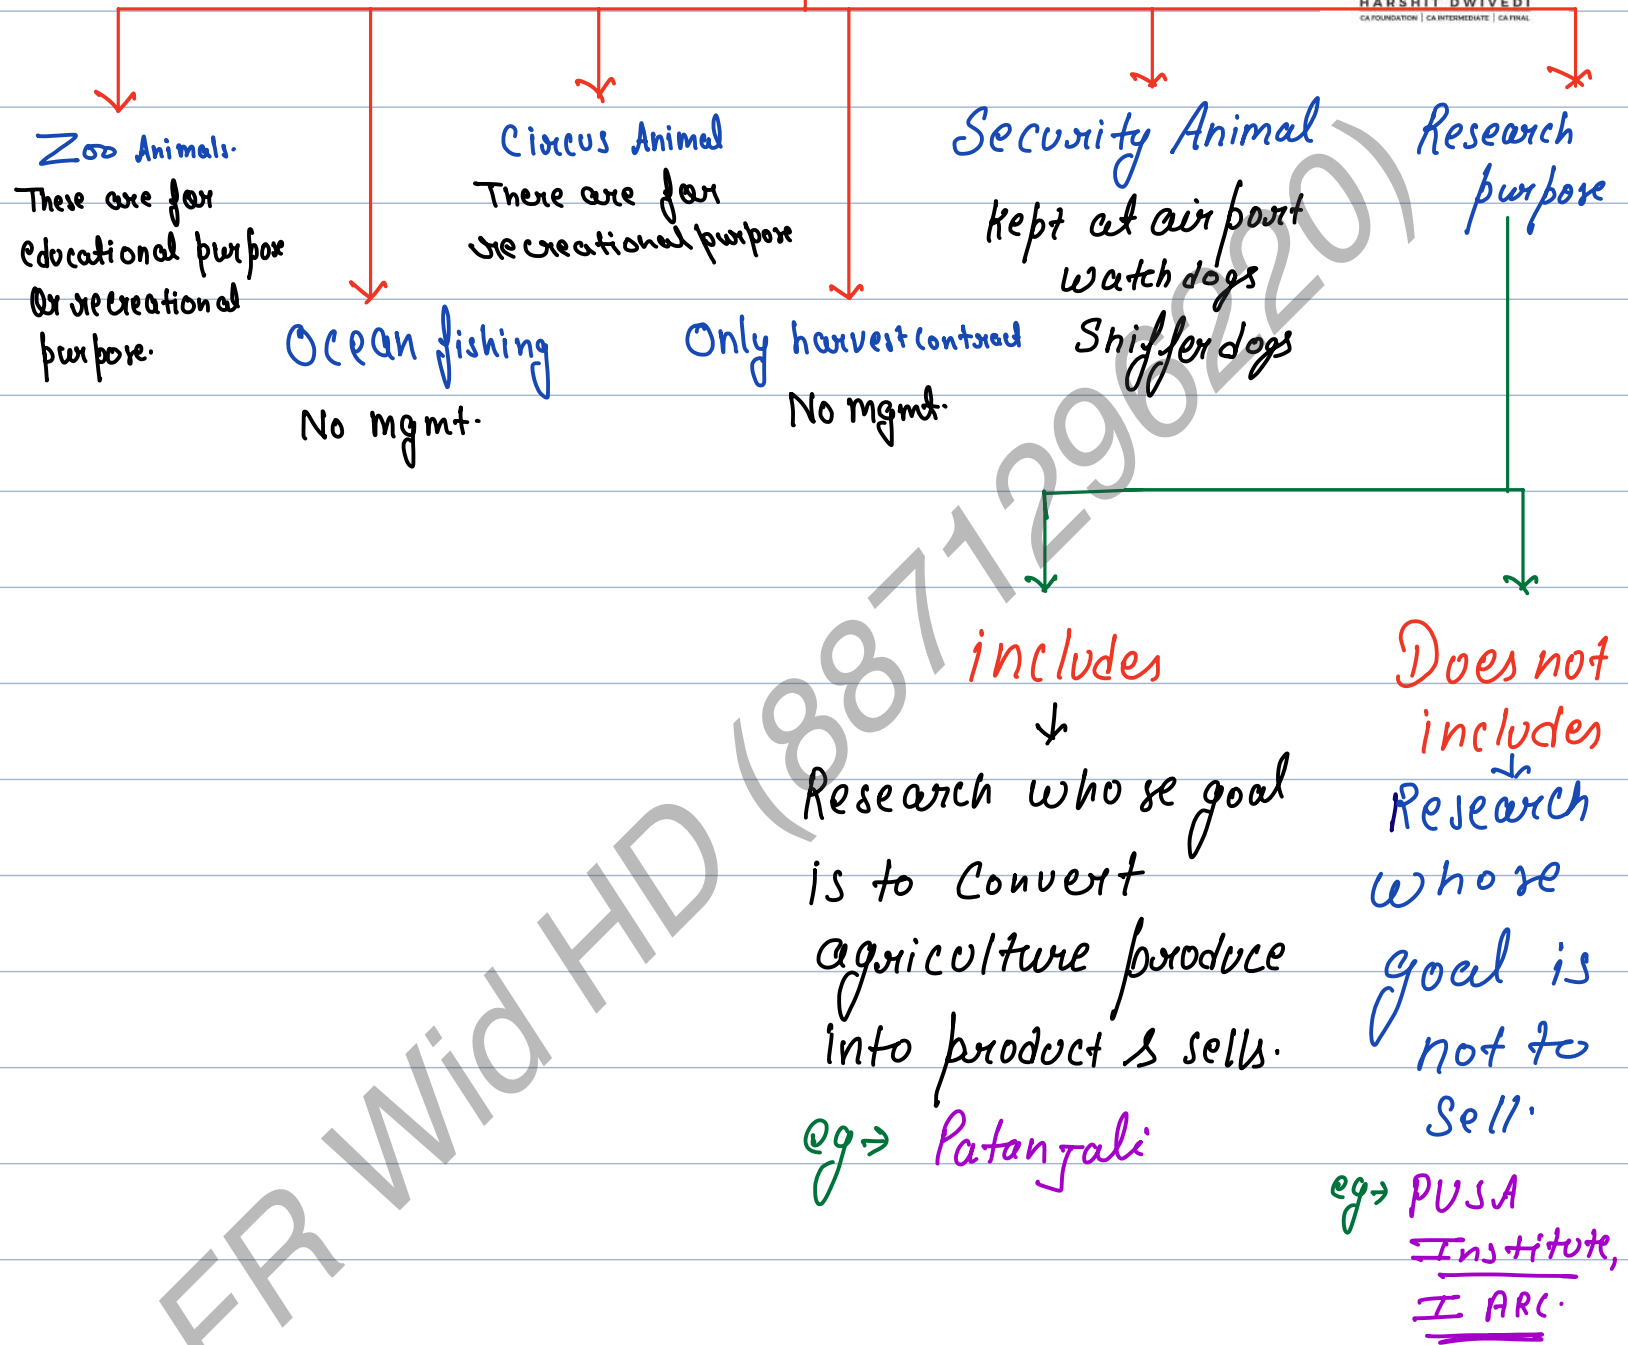 HARSHIT DWIVEDI
CA FOUNDATION | CA INTERMEDIATE | CA FINAL
Zoo Animals.
These are for
educational purpose
Or recreational
purpose.
Ocean fishing
No mgmt.
Circus Animal
There are for
recreational purpose
Only harvest contract
No mgmt.
Security Animal
Kept at airport
watch dogs
Sniffer dogs
Research
purpose
includes
Research whose goal
is to Convert
agriculture produce
into product & sells.
eg→ Patanjali
Does not
includes
Research
whose
goal is
not to
Sell.
eg→ PUSA
Institute,
I ARC.
FR Wid HD (8871129620)